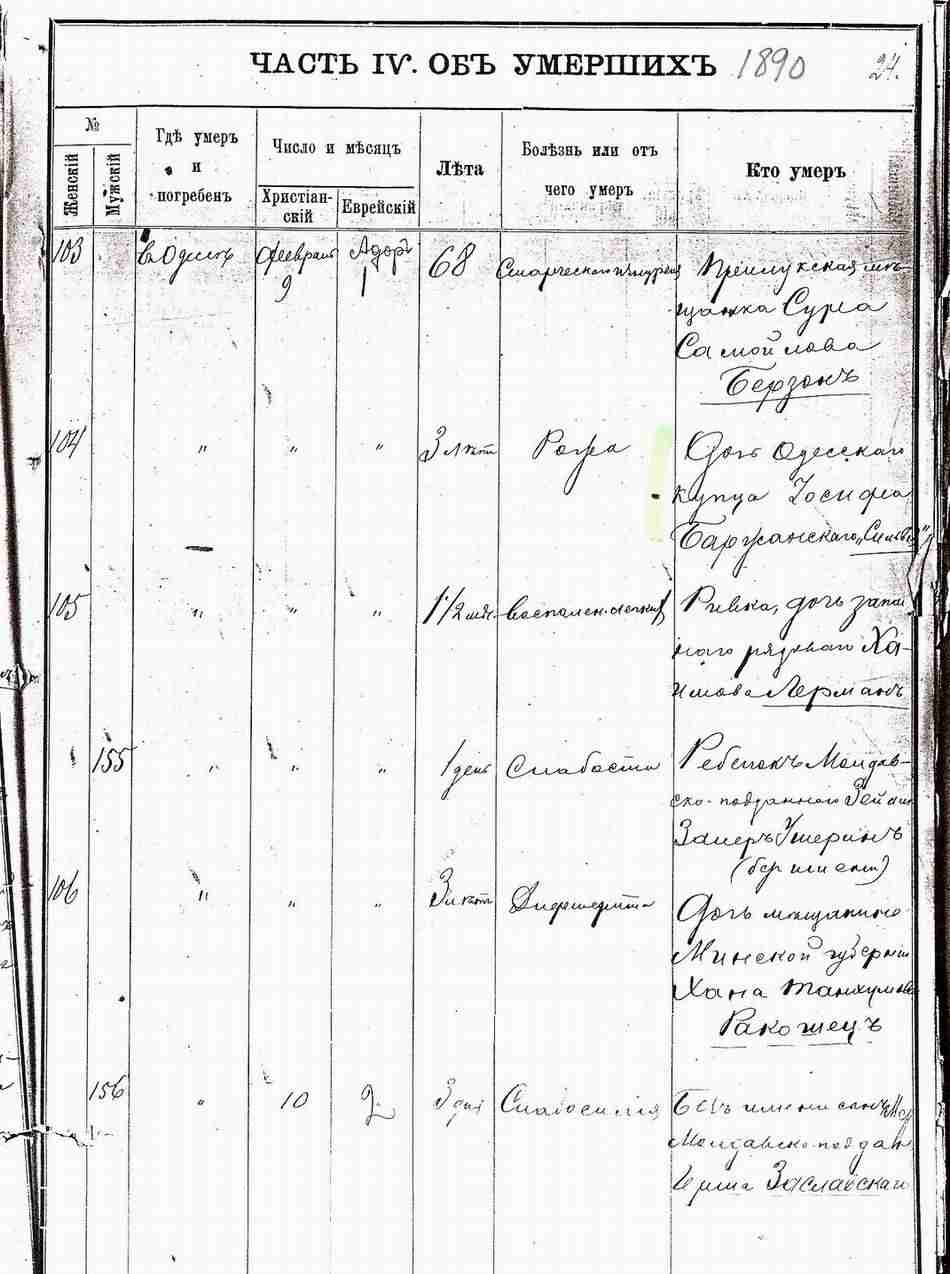 ЧАСТЬ IV. ОБЪ УМЕРШИХЪ 1890 24.
№
Женскій
Мужскій
Гдѣ умеръ
и
погребенъ
Число и мѣсяцъ
Христіан-
скій
Еврейскій
Лѣта
Болѣзнь или отъ
чего умеръ
Кто умеръ
103 Февраль Адоръ 68
9 1
Прилукская мѣ-
щанка Сура
Самойлова
Берзонъ
104 " " " 3 лѣтъ Рожа Дочь Одесскаго
купца Іосифа
Баржанскаго
105 " " " 1 1/2 мѣс. воспален. легкихъ Ривка, дочь запас
наго рядоваго Ха-
имова Лерманъ
155 " " " 1 день Слабости Ребенокъ Молдав-
ско-подданнаго
(без имени)
106 " " " 3 лѣтъ Дифтерита Дочь мѣщанина
Минской губерніи
Хана Танхумова
156 " 10 2 3 дня Слабосилія
Молдавскоподдан
Заславскаго